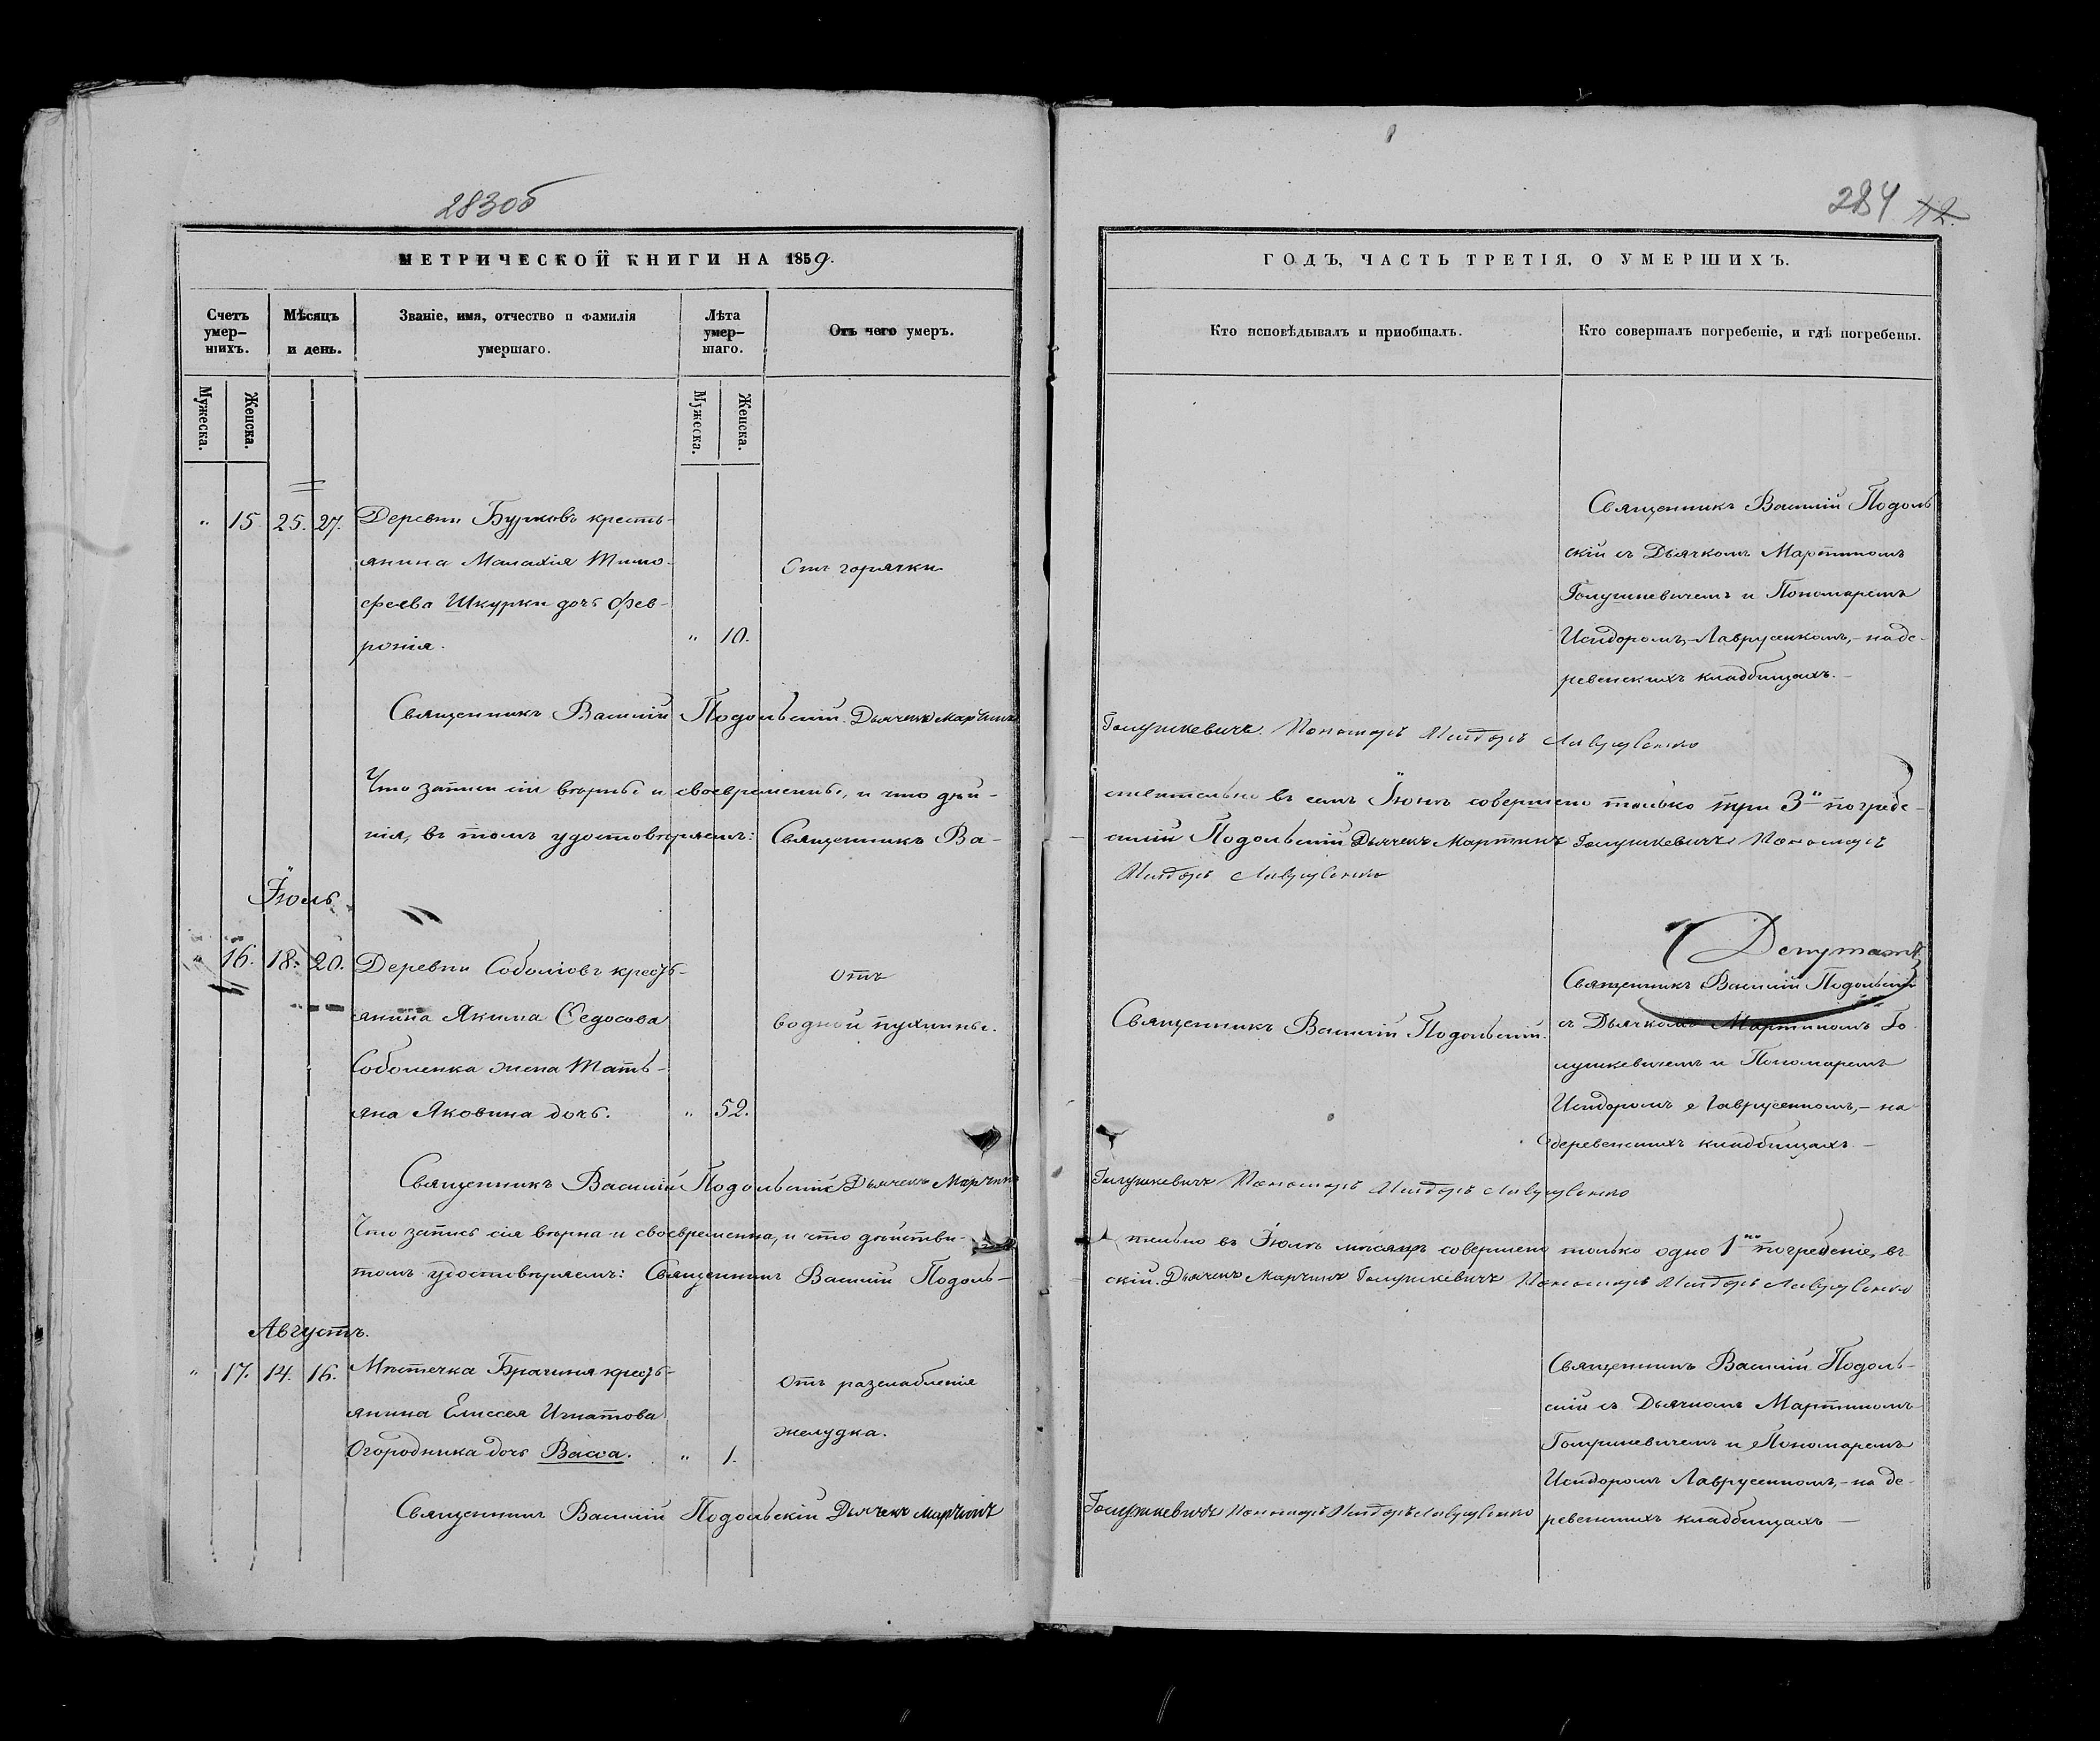 283об
МЕТРИЧЕСКОЙ КНИГИ НА 1859.
Счетъ умер-шихъ.
Мѣсяцъ и день.
Званіе, имя, отчество и фамилія умершаго.
Лѣта умер-шаго.
Отъ чего умеръ.
Мужеска.
Женска.
Мужеска.
Женска.
" 15. 25. 27. Деревни Бурковъ кресть-
янина Малахія Тимо-
феева Шкурки дочь Фев-
ронія. " 10.
Отъ горячки
Священникъ Василій Подольскій. Дьячекъ Мартинъ
Что записи сіи вѣрны и своевременны, и что дѣй-
нія, въ томъ удостовѣряемъ: Священникъ Ва-
Іюль.
" 16. 18. 20. Деревни Соболіовъ кресть-
янина Якима Федосова
Соболенка жена Тать-
яна Яковина дочь. " 52.
отъ
водной пухлины.
Священникъ Василій Подольскій Дьячекъ Мартинъ
Что запись сія вѣрна и своевременна, и что дѣйстви-
томъ удостовѣряемъ: Священникъ Василій Подоль-
Августъ.
" 17. 14. 16. Мѣстечка Брагиня кресть-
янина Елисея Игнатова
Огородника дочь Васса. " 1.
отъ разслабленія
желудка.
Священникъ Василій Подольскій Дьячекъ Мартинъ
284 42.
ГОДЪ, ЧАСТЬ ТРЕТІЯ, О УМЕРШИХЪ.
Кто исповѣдывалъ и приобщалъ.
Кто совершалъ погребеніе, и гдѣ погребены.
Священникъ Василій Подоль
скій съ Дьячкомъ Мартиномъ
Голушкевичемъ и Пономаремъ
Исидоромъ Лаврусенкомъ, - на де-
ревенскихъ кладбищахъ. -
Голушкевичъ. Пономарь Исидоръ Лаврусенко
ствительно въ семъ Іюнѣ совершено только три 3 погребе-
силій Подольскій Дьячекъ Мартинъ Голушкевичъ Пономарь
Исидоръ Лаврусенко
Депутатъ
Священникъ Василій Подольскій.
Священникъ Василій Подольскій
съ Дьячкомъ Мартиномъ Го
лушкевичемъ и Пономаремъ
Исидоромъ Лаврусенкомъ, - на
деревенскихъ кладбищахъ -
Голушкевичъ Пономарь Исидоръ Лаврусенко
тельно въ Іюлѣ мѣсяцѣ совершено только одно 1но погребеніе, въ
скій. Дьячекъ Мартинъ Голушкевичъ Пономарь Исидоръ Лаврусенко
Священникъ Василій Подоль-
скій съ Дьячкомъ Мартиномъ
Голушкевичемъ и Пономаремъ
Исидоромъ Лаврусенкомъ, - на де-
ревенскихъ кладбищахъ -
Голушкевичъ Пономарь Исидоръ Лаврусенко